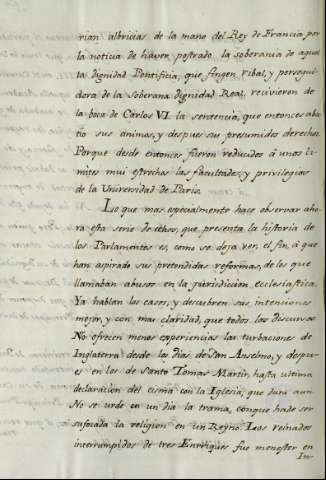 rian albricias de la mano del Rey de Francia por
la noticia de haver postrado la soberania de aquel
la dignidad Pontificia, que fingen ribal, y persegui
dora de la soberana dignidad Real, recivieron de
la boca de Carlos VI. la sentencia, que entonces aba
tio sus animos, y despues sus presumidos derechos.
Porque desde entonces fueron reducidos à unos li
mites mui estrechos las facultades, y privilegios
de la Universidad de Paris.
Lo que mas especialmente hace observar aho
ra esta serie de echos, que presenta la historia de
los Parlamentos es, como se deja ver, el fin, à que
han aspirado sus pretendidas reformas, de los que
llamaban abusos en la jurisdiccion ecclesiastica.
Ya hablan los casos, y descubren sus intenciones
mejor, y con mas claridad, que todos los discursos.
No ofrecen menos experiencias las turbaciones de
Inglaterra desde los dias de San Anselmo, y despu-
es en los de Santo Tomas Martir, hasta ultima
declaracion del cisma con la Iglesia, que dura aun.
No se urde en un dia la trama, conque hade ser
sufocada la religion en un Reyno. Los reinados
interrumpidos de tres Enrriques fue menester en
In-